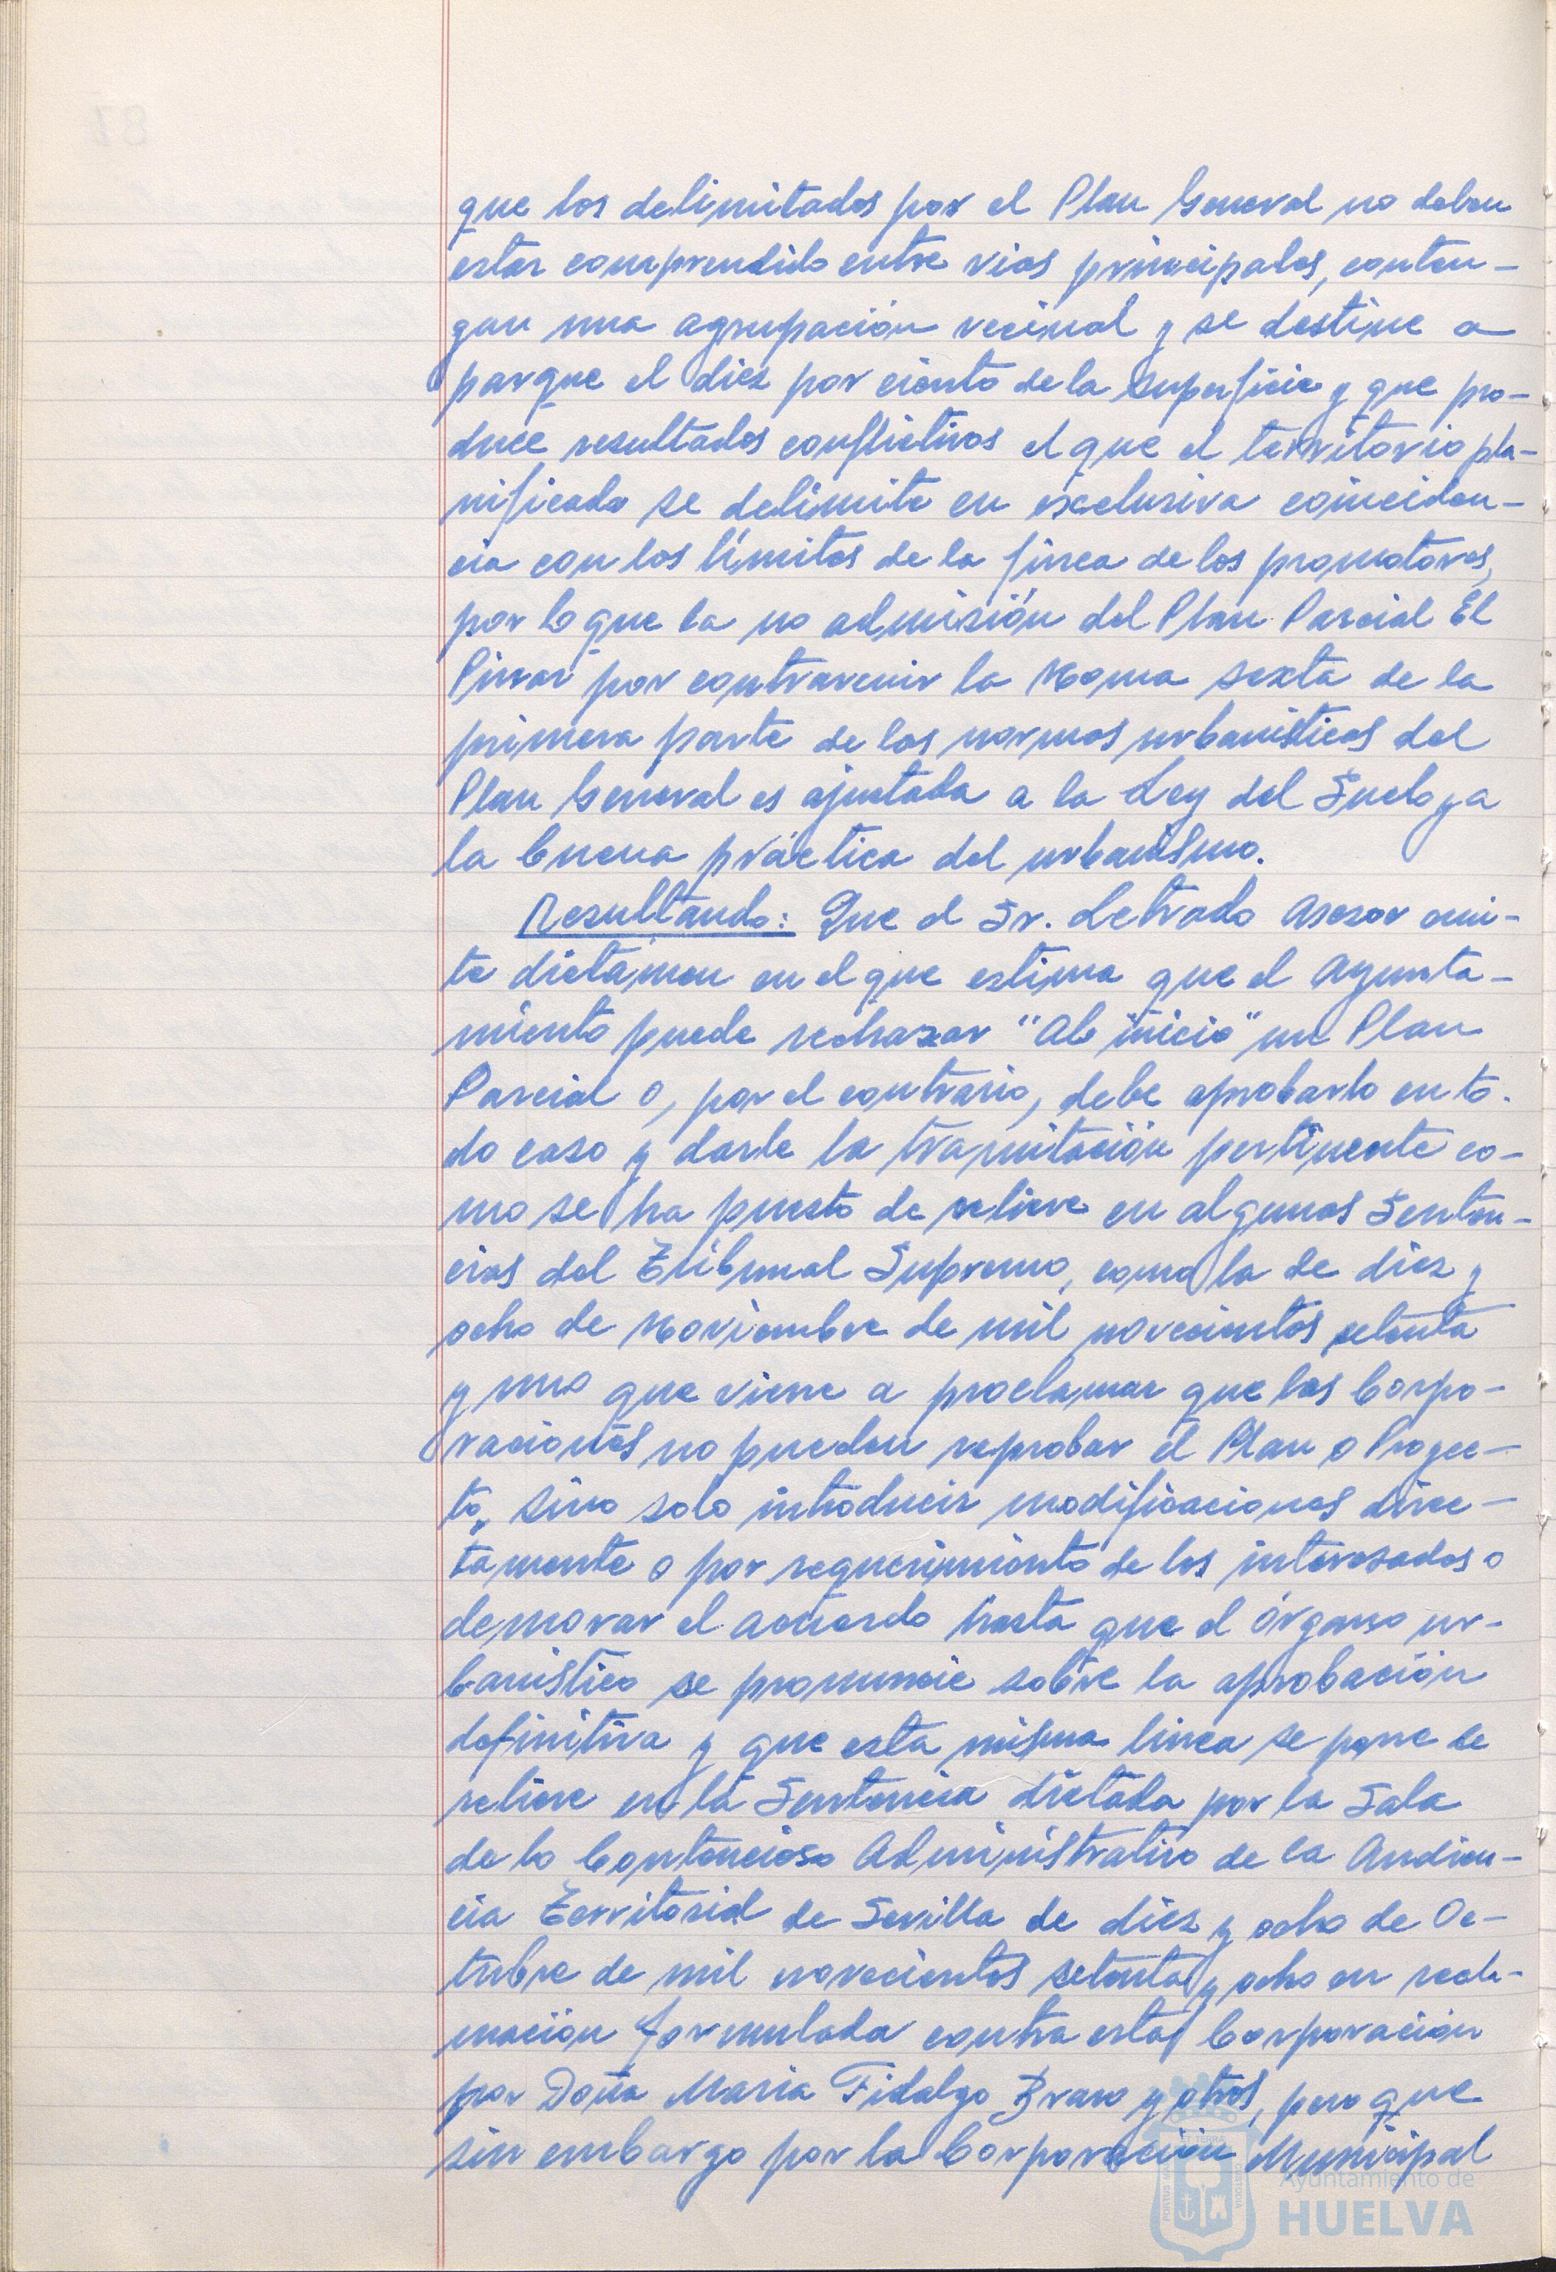 que los delimitados por el Plan General no deben
estar comprendido entre vias principales, conten-
gan una agrupación vecinal y se destine a
parque el diez por ciento de la superficie y que pro-
duce resultados conflictivos el que el territorio pla-
nificado se delimite en exclusiva coinciden-
cia con los límites de la finca de los promotores,
por lo que la no admisión del Plan Parcial El
Pinar por contravenir la Norma sexta de la
primera parte de las normas urbanisticas del
Plan General es ajustada a la Ley del Suelo y a
la buena práctica del urbanismo.
Resultando: Que el Sr. Letrado Asesor emi-
te dictámen en el que estima que el Ayunta-
miento puede rechazar "Ab inicio" un Plan
Parcial o, por el contrario, debe aprobarlo en to-
do caso y darle la tramitación pertinente co-
mo se ha puesto de relieve en algunas Senten-
cias del Tribunal Supremo, como la de diez y
ocho de Noviembre de mil novecientos setenta
y uno que viene a proclamar que las Corpo-
raciones no pueden reprobar el Plan o Proyec-
to, sino solo introducir modificaciones direc-
tamente o por requerimiento de los interesados o
demorar el acuerdo hasta que el órgano ur-
banistico se pronuncie sobre la aprobación
definitiva y que esta misma linea se pone de
relieve en la Sentencia dictada por la Sala
de lo Contencioso Administrativo de la Audien-
cia Territorial de Sevilla de diez y ocho de Oc-
tubre de mil novecientos setenta y ocho en recla-
mación formulada contra esta Corporación
por Doña Maria Fidalgo Bravo y otros, pero que
sin embargo por la Corporación Municipal
Ayuntamiento de
HUELVA